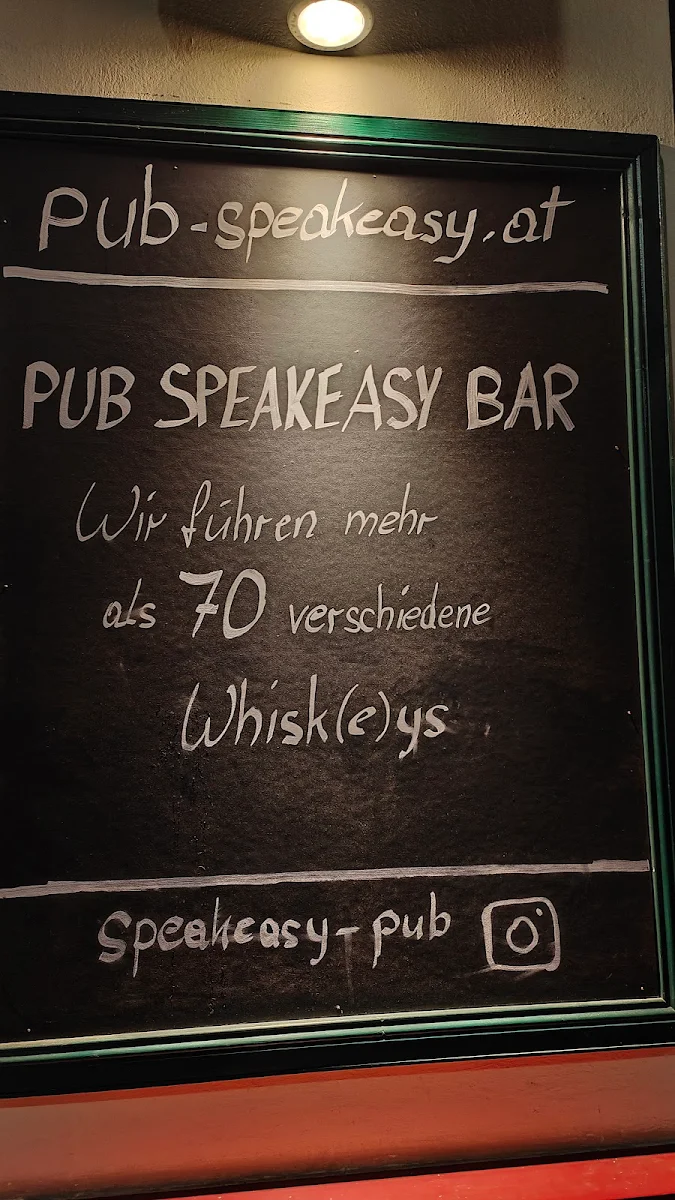 pub-speakeasy.at
PUB SPEAKEASY BAR
Wir führen mehr
als 70 verschiedene
Whisk(e)ys
speakeasy-pub